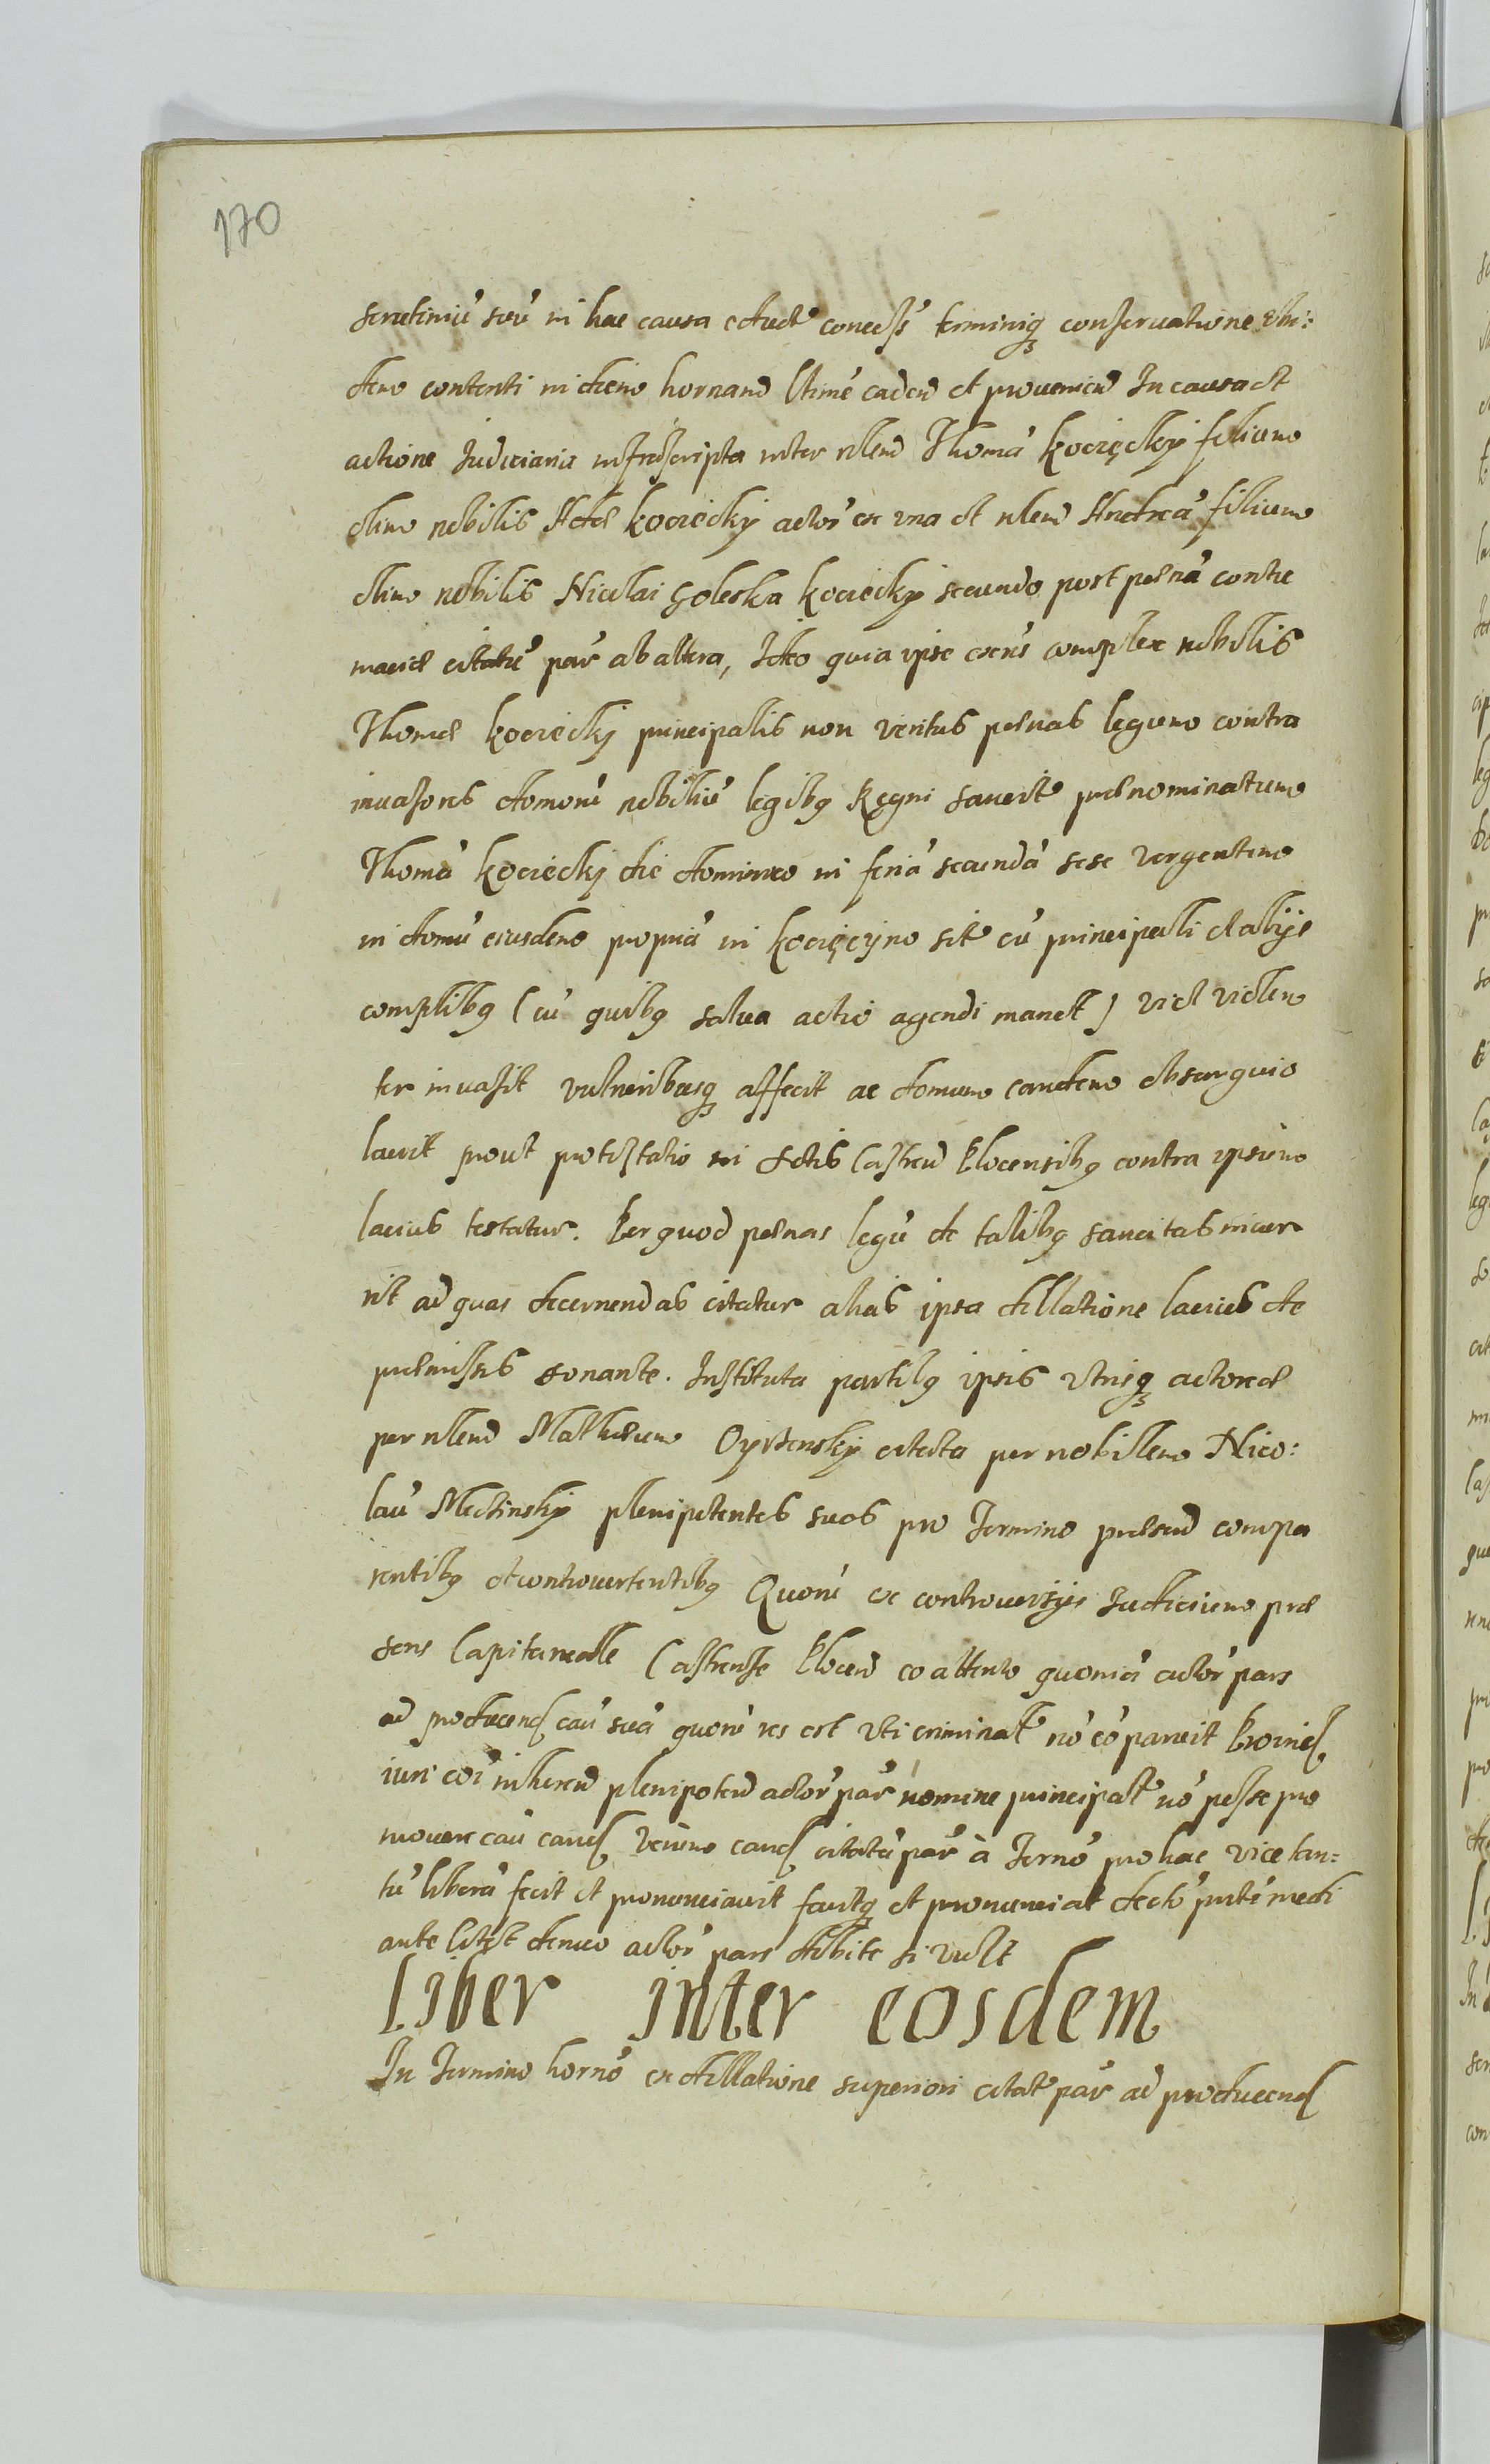 170
scrutiniũ suũ in hac causa educt concess terminiq conservatione ibi:
dem contenti in diem hornam ltimé caden et provenien In causa et
actione Judiciaria infrascripta inter nlem Thomá Kocięcky filium
olim nobilis Adae Kociecky actor ex una et nlem Andreá filium
olim nobilis Nicolai Goleska Kociecky secundo post paená contu
maciae citatũ par ab altera, Ideo quia ipse exns complex nobilis
Thomae Kociecky principalis non veritus paenas legum contra
invasores domorũ nobiliũ legibq Regni sancit praenominatum
Thomá Kociecky die dominico in feriá secundá sese vergentem
in domũ eiusdem propriá in Kocięcyno sit cũ principali et alijs
complibq (cũ quibq salva actio agendi manet) viol violen
ter invasit vulneribusq affecit ac domum eandem obsangui
lavit prout protestatio in Actis Castren Plocensibq contra ipsum
lacius testatur. Per quod paenas legũ de talibq sancitas incur
rit ad quas decernendas citatur alias ipsa dillatione lacius de
praemissis sonante. Instituta partibq ipsis utrisq actorea
per nlem Mathaeum Oyrzensky citata per nobilem Nico:
laũ Meclinsky plenipotentes suos pro Termino praesen compa
rentibq et controvertentibq Quorũ ex controversijs Judicium prae
sens Capitaneale Castrense Plocen eo attento quoniá actor pars
ad producend caũ suá quorũ res est uti criminal nõ cõparuit Proinde
iuri cõi inheren plenipoten actor par nomine principal nõ posse pro
movere caũ eand verum eand citatũ par à Terno pro hac vice tan=
tũ liberá fecit et pronunciavit facitq et pronunciat decto prnti medi
ante denuo actor pars debite si vult
Liber inter eosdem
In Termino horno ex dillatione superiori citat par ad producend